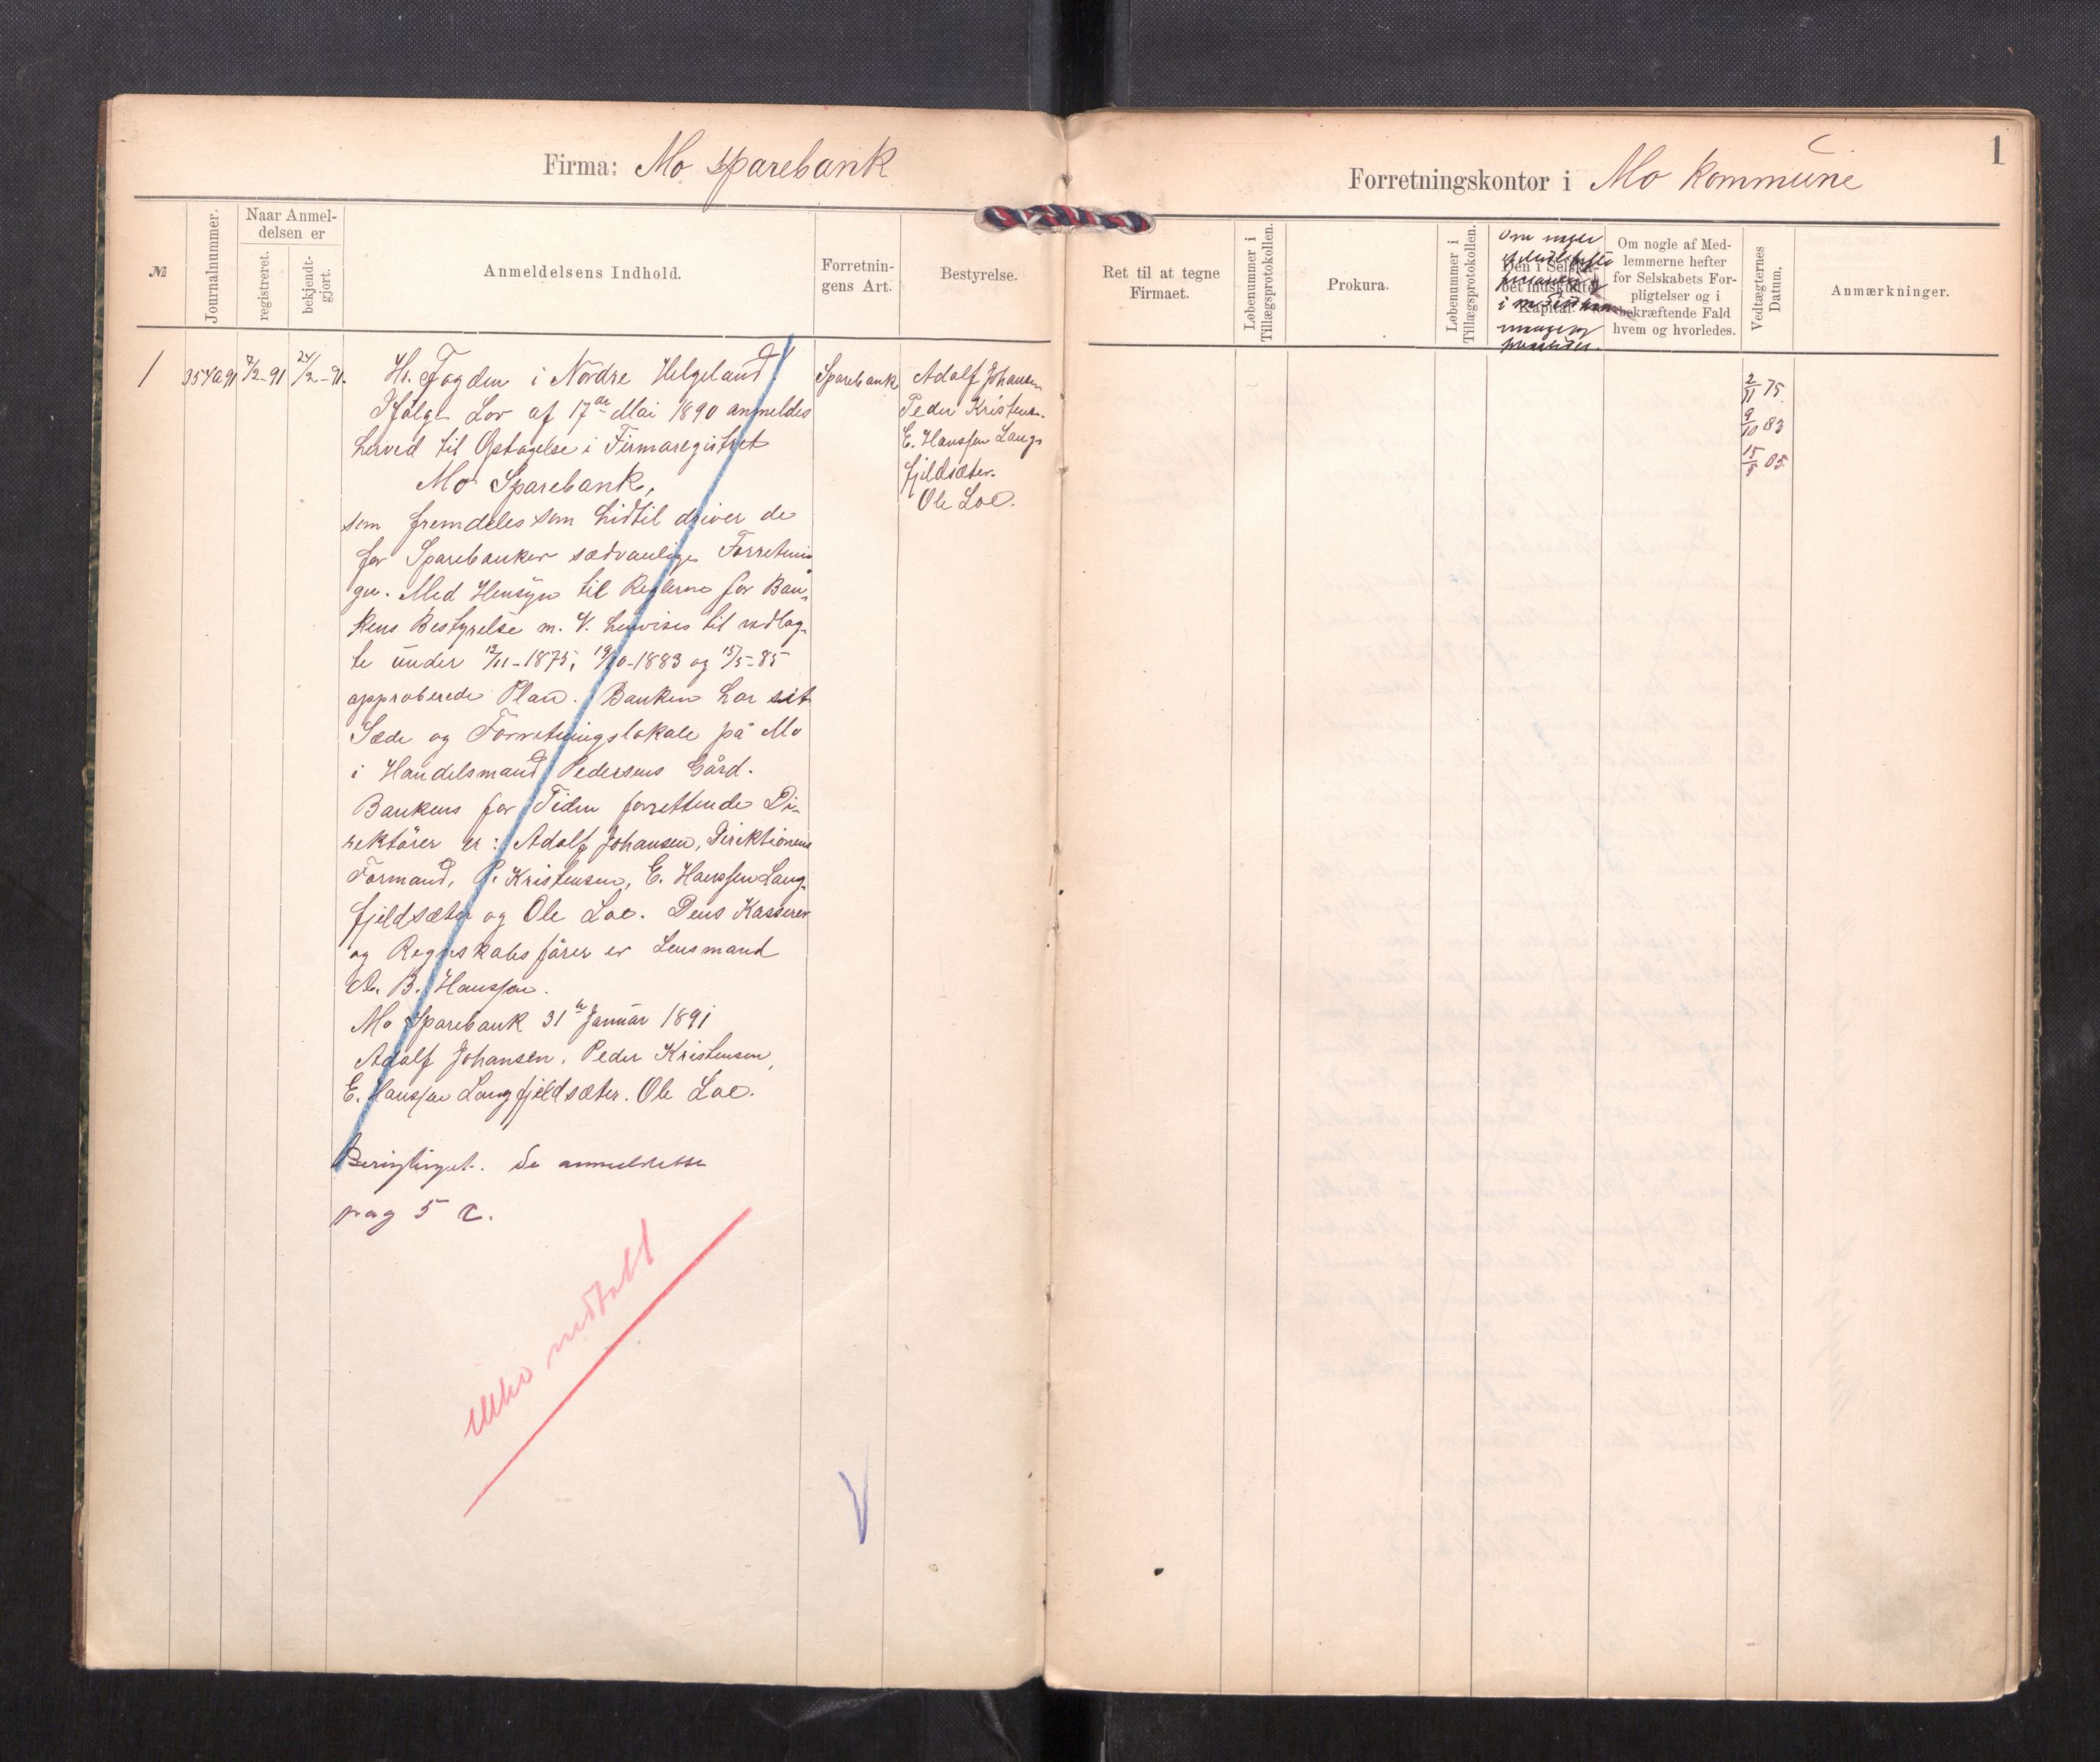 Firma: Mo sparebank
Forretningskontor i Mo kommune
1
№
Journalnummer.
Naar Anmel-
delsen er
registreret.
bekjendt-
gjort.
Anmeldelsens Indhold.
Forretnin-
gens Art.
Bestyrelse.
Ret til at tegne
Firmaet.
Løbenummer i
Tillægsprotokollen.
Prokura.
Løbenummer i
Tillægsprotokollen.
Om
Den i Selska-
bet indskudte
Kapital.
Om nogle af Med-
lemmerne hefter
for Selskabets For-
pligtelser og i
bekræftende Fald
hvem og hvorledes.
Vedtægternes
Datum.
Anmærkninger.
1
354a91
7/2-91
24/2-91.
Hr. Fogden i Nordre Helgeland!
Ifølge Lov af 17de Mai 1890 anmeldes
herved til Optagelse i Firmaregistret
Mo Sparebank,
som fremdeles som hidtil driver de
for Sparebanker sædvanlige Forretnin
ger. Med Hensyn til Reglerne for Ban-
kens Bestyrelse m. V. henvises til vedlag-
te under 12/11-1875, 19/10-1883 og 15/5-85
approberede Plan. Banken har sit
Sæde og Forretningslokale på Mo
i Handelsmand Pedersens Gård.
Bankens for Tiden forrettende Di-
rektører er: Adolf Johansen, Direktionens
Formand, P. Kristensen, E. Hanssen Lang-
fjeldsæter og Ole Loe. Dens Kasserer
og Regnskabsfører er Lensmand
B. Hanssen.
Mo Sparebank 31te Januar 1891
Adolf Johansen, Peder Kristensen,
E. Hanssen Langfjeldsæter. Ole Loe.
Berigtiget. Se anmeldelse
pag 5 c.
Sparebank
Adolf Johansen
Peder Kristensen.
E. Hanssen Lang-
fjeldsæter.
Ole Loe.
2/11 75.
9/10 83
15/5 85.
ikke inntatt